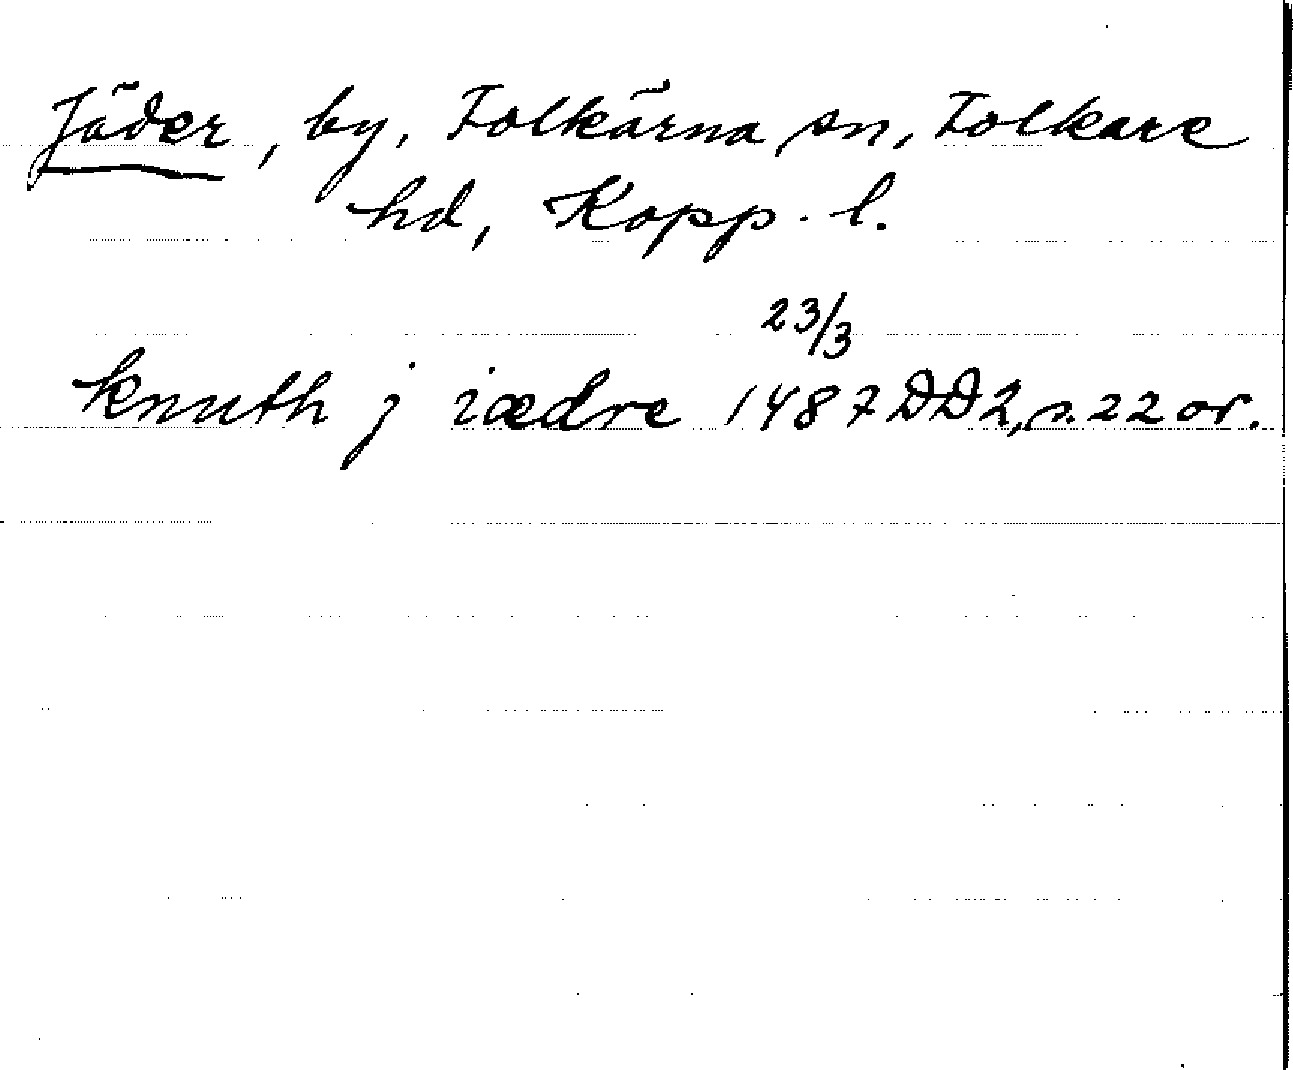 Jäder, by, Folkärna sn, Folkare
hd, Kopp. l.
23/3
knuth j iædre 1487 DD2, s. 22 or.